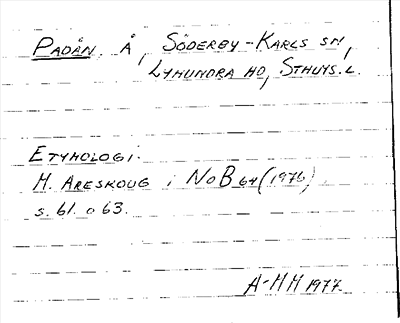 PADÅN. Å, SÖDERBY-KARLS SN,
LYHUNDRA HD, STHLMS. L.
ETYMOLOGI:
H. ARESKOUG i NoB 64 (1976),
s. 61. o 63.
A-MH 1977.